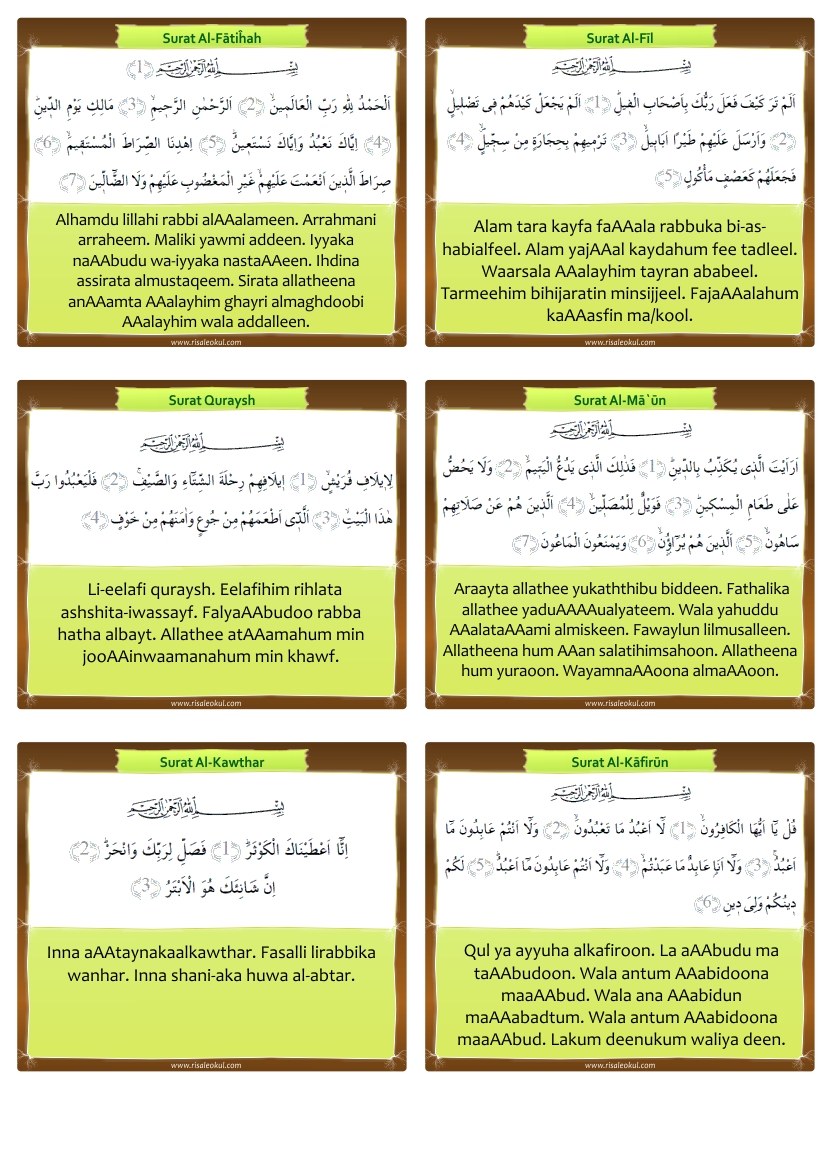 Surat Al-Fātiĥah
بِسْمِ اللّٰهِ الرَّحْمٰنِ الرَّحِيمِ ﴿1﴾
اَلْحَمْدُ لِلّٰهِ رَبِّ الْعَالَمِينَۙ ﴿2﴾ اَلرَّحْمٰنِ الرَّحِيمِۙ ﴿3﴾ مَالِكِ يَوْمِ الدِّينِۜ
﴿4﴾ اِيَّاكَ نَعْبُدُ وَاِيَّاكَ نَسْتَعِينُۜ ﴿5﴾ اِهْدِنَا الصِّرَاطَ الْمُسْتَقِيمَۙ ﴿6﴾
صِرَاطَ الَّذِينَ اَنْعَمْتَ عَلَيْهِمْۙ غَيْرِ الْمَغْضُوبِ عَلَيْهِمْ وَلَا الضَّٓالِّينَ ﴿7﴾
Alhamdu lillahi rabbi alAAalameen. Arrahmani
arraheem. Maliki yawmi addeen. Iyyaka
naAAbudu wa-iyyaka nastaAAeen. Ihdina
assirata almustaqeem. Sirata allatheena
anAAamta AAalayhim ghayri almaghdoobi
AAalayhim wala addalleen.
www.risaleokul.com
Surat Al-Fīl
بِسْمِ اللّٰهِ الرَّحْمٰنِ الرَّحِيمِ
اَلَمْ تَرَ كَيْفَ فَعَلَ رَبُّكَ بِاَصْحَابِ الْفِيلِۜ ﴿1﴾ اَلَمْ يَجْعَلْ كَيْدَهُمْ فِي تَضْلِيلٍۙ
﴿2﴾ وَاَرْسَلَ عَلَيْهِمْ طَيْرًا اَبَابِيلَۙ ﴿3﴾ تَرْمِيهِمْ بِحِجَارَةٍ مِنْ سِجِّيلٍۖ ﴿4﴾
فَجَعَلَهُمْ كَعَصْفٍ مَأْكُولٍ ﴿5﴾
Alam tara kayfa faAAala rabbuka bi-as-
habialfeel. Alam yajAAal kaydahum fee tadleel.
Waarsala AAalayhim tayran ababeel.
Tarmeehim bihijaratin minsijjeel. FajaAAalahum
kaAAasfin ma/kool.
www.risaleokul.com
Surat Quraysh
بِسْمِ اللّٰهِ الرَّحْمٰنِ الرَّحِيمِ
لِاِيلَافِ قُرَيْشٍۙ ﴿1﴾ اِيلَافِهِمْ رِحْلَةَ الشِّتَٓاءِ وَالصَّيْفِۚ ﴿2﴾ فَلْيَعْبُدُوا رَبَّ
هٰذَا الْبَيْتِۙ ﴿3﴾ اَلَّذِٓي اَطْعَمَهُمْ مِنْ جُوعٍ وَاٰمَنَهُمْ مِنْ خَوْفٍ ﴿4﴾
Li-eelafi quraysh. Eelafihim rihlata
ashshita-iwassayf. FalyaAAbudoo rabba
hatha albayt. Allathee atAAamahum min
jooAAinwaamanahum min khawf.
www.risaleokul.com
Surat Al-Mā`ūn
بِسْمِ اللّٰهِ الرَّحْمٰنِ الرَّحِيمِ
اَرَاَيْتَ الَّذِي يُكَذِّبُ بِالدِّينِۜ ﴿1﴾ فَذٰلِكَ الَّذِي يَدُعُّ الْيَتِيمَۙ ﴿2﴾ وَلَا يَحُضُّ
عَلٰى طَعَامِ الْمِسْكِينِۜ ﴿3﴾ فَوَيْلٌ لِلْمُصَلِّينَۙ ﴿4﴾ اَلَّذِينَ هُمْ عَنْ صَلَاتِهِمْ
سَاهُونَۙ ﴿5﴾ اَلَّذِينَ هُمْ يُرَٓاؤُ۫نَۙ ﴿6﴾ وَيَمْنَعُونَ الْمَاعُونَ ﴿7﴾
Araayta allathee yukaththibu biddeen. Fathalika
allathee yaduAAAAualyateem. Wala yahuddu
AAalataAAami almiskeen. Fawaylun lilmusalleen.
Allatheena hum AAan salatihimsahoon. Allatheena
hum yuraoon. WayamnaAAoona almaAAoon.
www.risaleokul.com
Surat Al-Kawthar
بِسْمِ اللّٰهِ الرَّحْمٰنِ الرَّحِيمِ
اِنَّٓا اَعْطَيْنَاكَ الْكَوْثَرَۜ ﴿1﴾ فَصَلِّ لِرَبِّكَ وَانْحَرْۜ ﴿2﴾
اِنَّ شَانِئَكَ هُوَ الْاَبْتَرُ ﴿3﴾
Inna aAAtaynakaalkawthar. Fasalli lirabbika
wanhar. Inna shani-aka huwa al-abtar.
www.risaleokul.com
Surat Al-Kāfirūn
بِسْمِ اللّٰهِ الرَّحْمٰنِ الرَّحِيمِ
قُلْ يَٓا اَيُّهَا الْكَافِرُونَۙ ﴿1﴾ لَٓا اَعْبُدُ مَا تَعْبُدُونَۙ ﴿2﴾ وَلَٓا اَنْتُمْ عَابِدُونَ مَٓا
اَعْبُدُۚ ﴿3﴾ وَلَٓا اَنَا۬ عَابِدٌ مَا عَبَدْتُمْۙ ﴿4﴾ وَلَٓا اَنْتُمْ عَابِدُونَ مَٓا اَعْبُدُۜ ﴿5﴾ لَكُمْ
دِينُكُمْ وَلِيَ دِينِ ﴿6﴾
Qul ya ayyuha alkafiroon. La aAAbudu ma
taAAbudoon. Wala antum AAabidoona
maaAAbud. Wala ana AAabidun
maAAabadtum. Wala antum AAabidoona
maaAAbud. Lakum deenukum waliya deen.
www.risaleokul.com